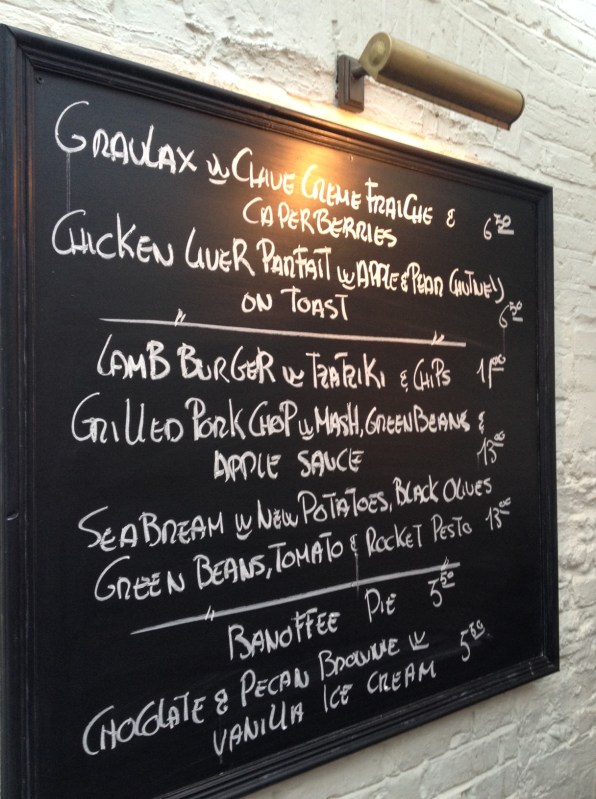 GRAVLAX W CHIVE CREME FRAICHE &
CAPERBERRIES 6 50
CHICKEN LIVER PARFAIT W APPLE & PEAR CHUTNEY
ON TOAST 6 50
LAMB BURGER W TZATZIKI & CHIPS 11 00
GRILLED PORK CHOP W MASH, GREEN BEANS &
APPLE SAUCE 13 00
SEABREAM W NEW POTATOES, BLACK OLIVES
GREEN BEANS, TOMATO & ROCKET PESTO 13 00
BANOFFEE PIE 5 50
CHOCOLATE & PECAN BROWNIE W
VANILLA ICE CREAM 5 50